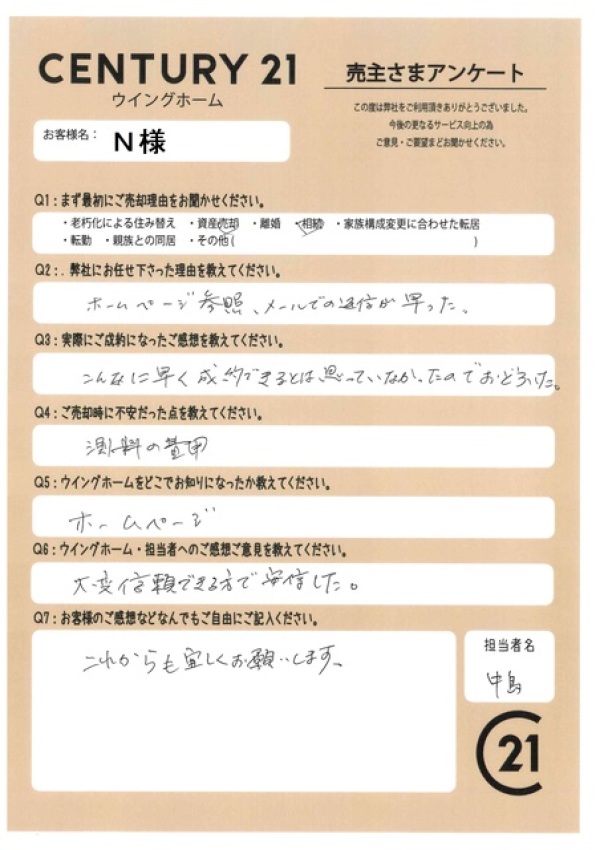 CENTURY 21
ウイングホーム
売主さまアンケート
この度は弊社をご利用頂きありがとうございました。
今後の更なるサービス向上の為
ご意見・ご要望までお聞かせください。
お客様名： N様
Q1：まず最初にご売却理由をお聞かせください。
・老朽化による住み替え ・資産売却 ・離婚 ・相続 ・家族構成変更に合わせた転居
・転勤 ・親族との同居 ・その他( )
Q2：. 弊社にお任せ下さった理由を教えてください。
ホームページ参照、メールでの返信が早った。
Q3：実際にご成約になったご感想を教えてください。
こんなに早く成約できるとは思っていなかったのでおどろいた。
Q4：ご売却時に不安だった点を教えてください。
測料の費用
Q5：ウイングホームをどこでお知りになったか教えてください。
ホームページ
Q6：ウイングホーム・担当者へのご感想ご意見を教えてください。
大変信頼できる方で安信した。
Q7：お客様のご感想などなんでもご自由にご記入ください。
これからも宜しくお願いします。
担当者名
中島
C21